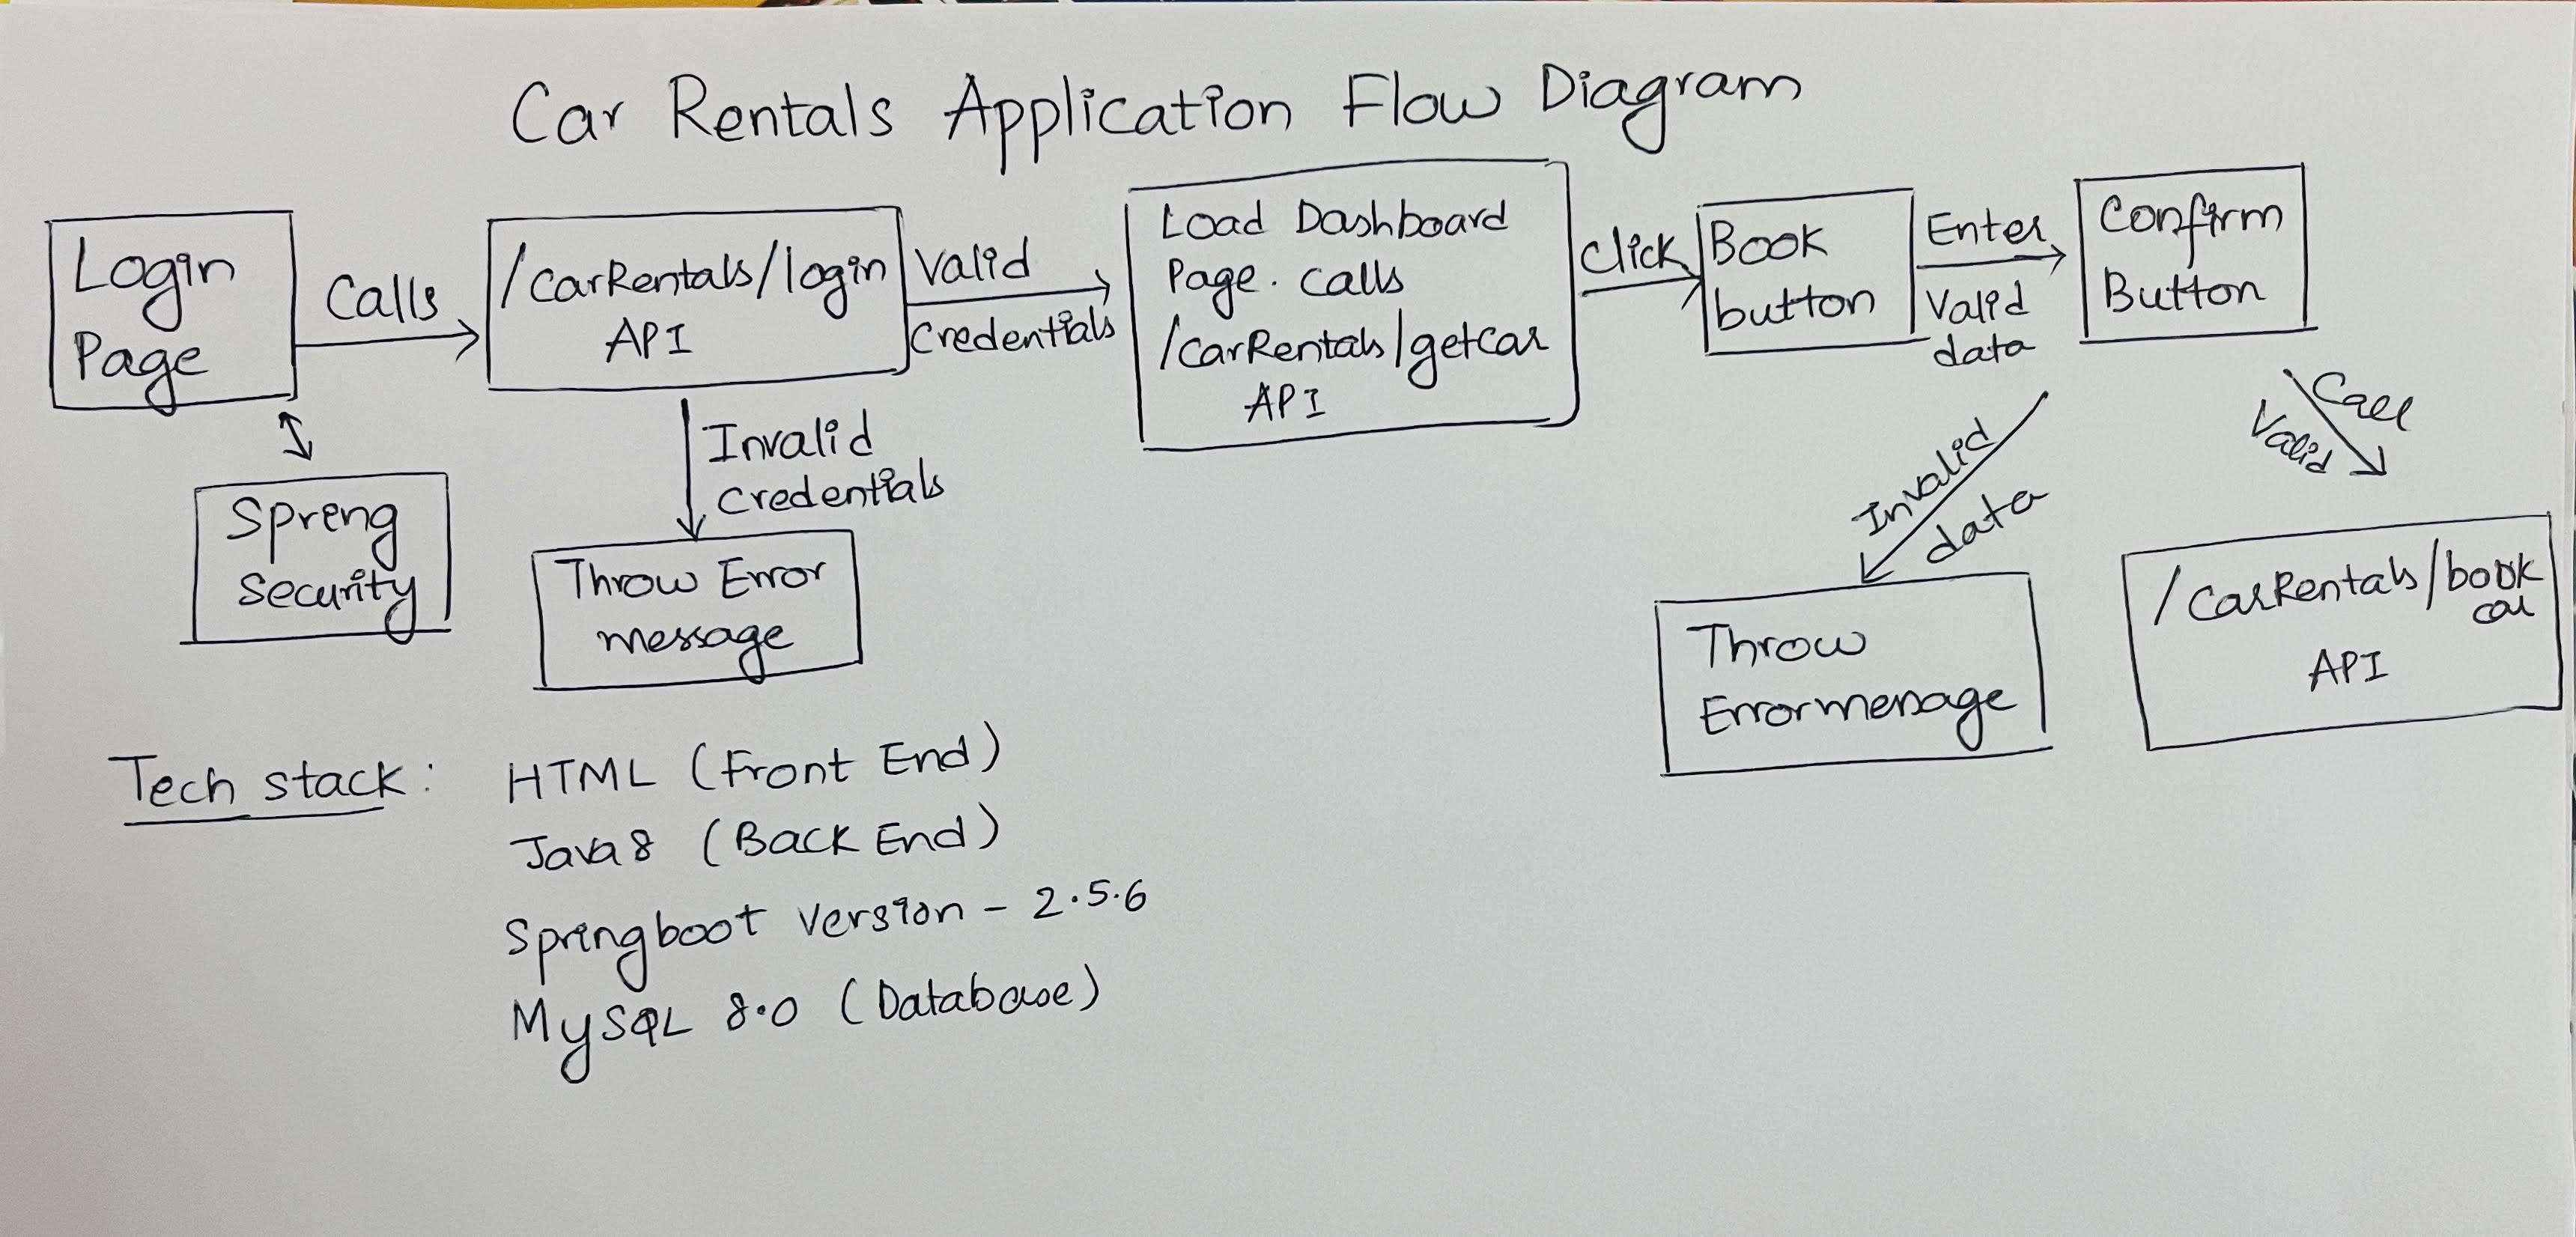 Car Rentals Application Flow Diagram
Login
Page
Calls
/carRentals/login
API
Valid
Credentials
Load Dashboard
Page. calls
/carRentals/getcar
API
click
Book
button
Enter
Valid
data
Confirm
Button
Spring
Security
Invalid
Credentials
Throw Error
message
Invalid
data
Throw
Error message
Call
Valid
/carRentals/book
car
API
Tech stack: HTML (Front End)
Java8 (Back End)
Springboot version - 2.5.6
MySQL 8.0 (Database)